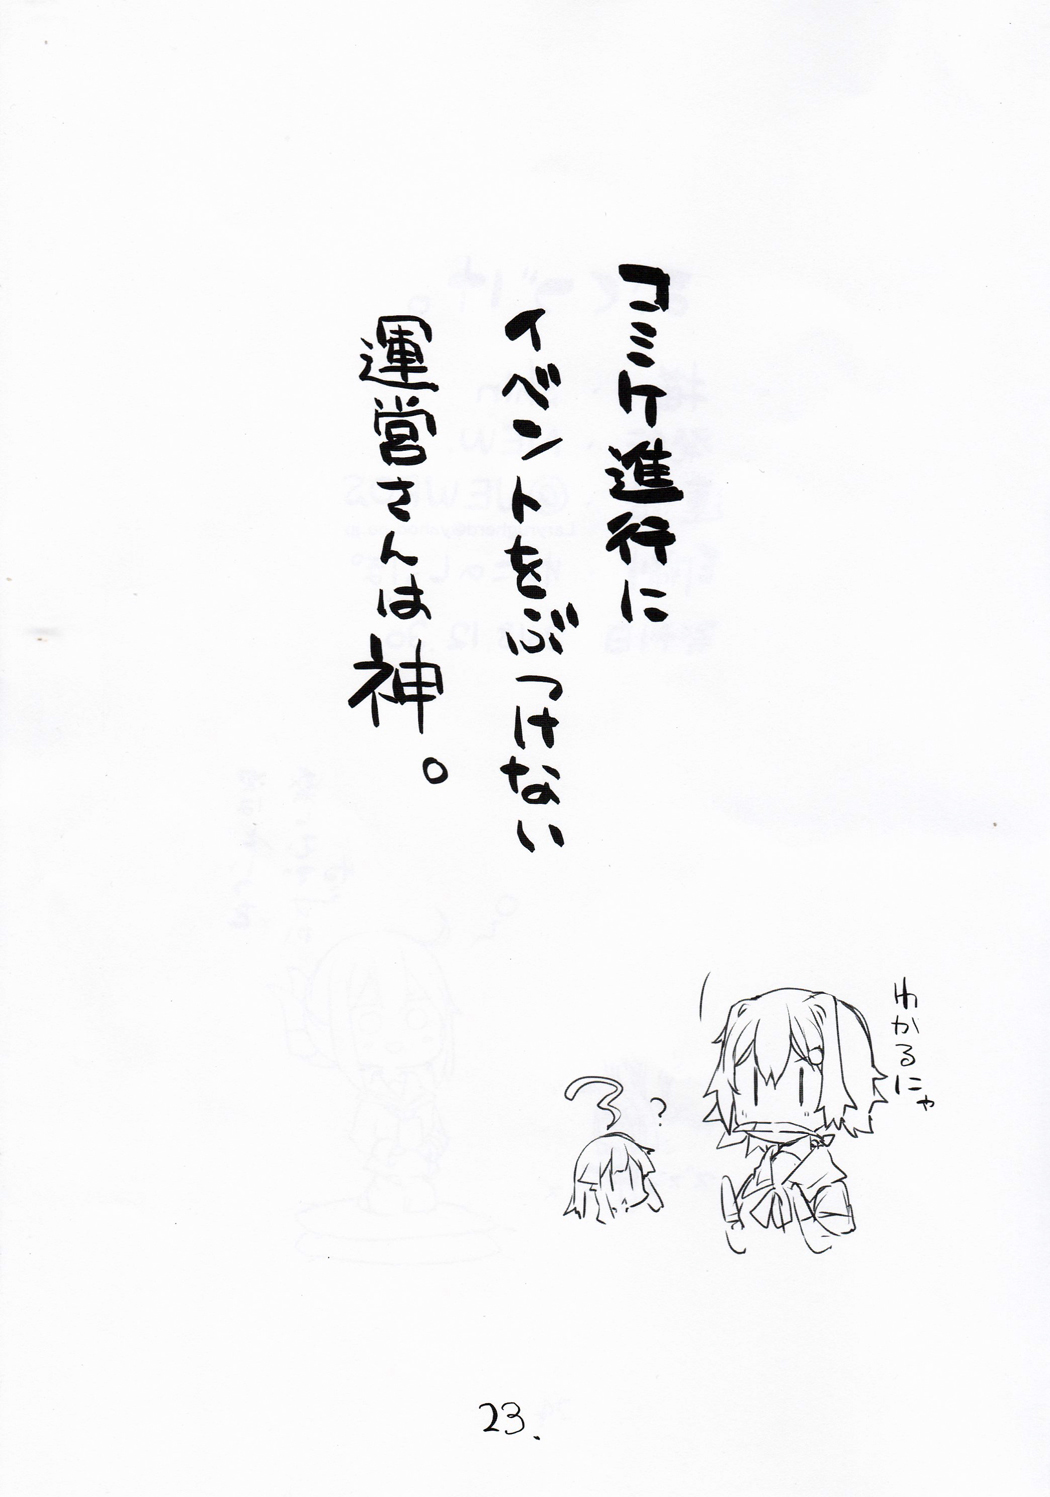 コミケ進行に
イベントをぶつけない
運営さんは神。
わかるにゃ
?
23.